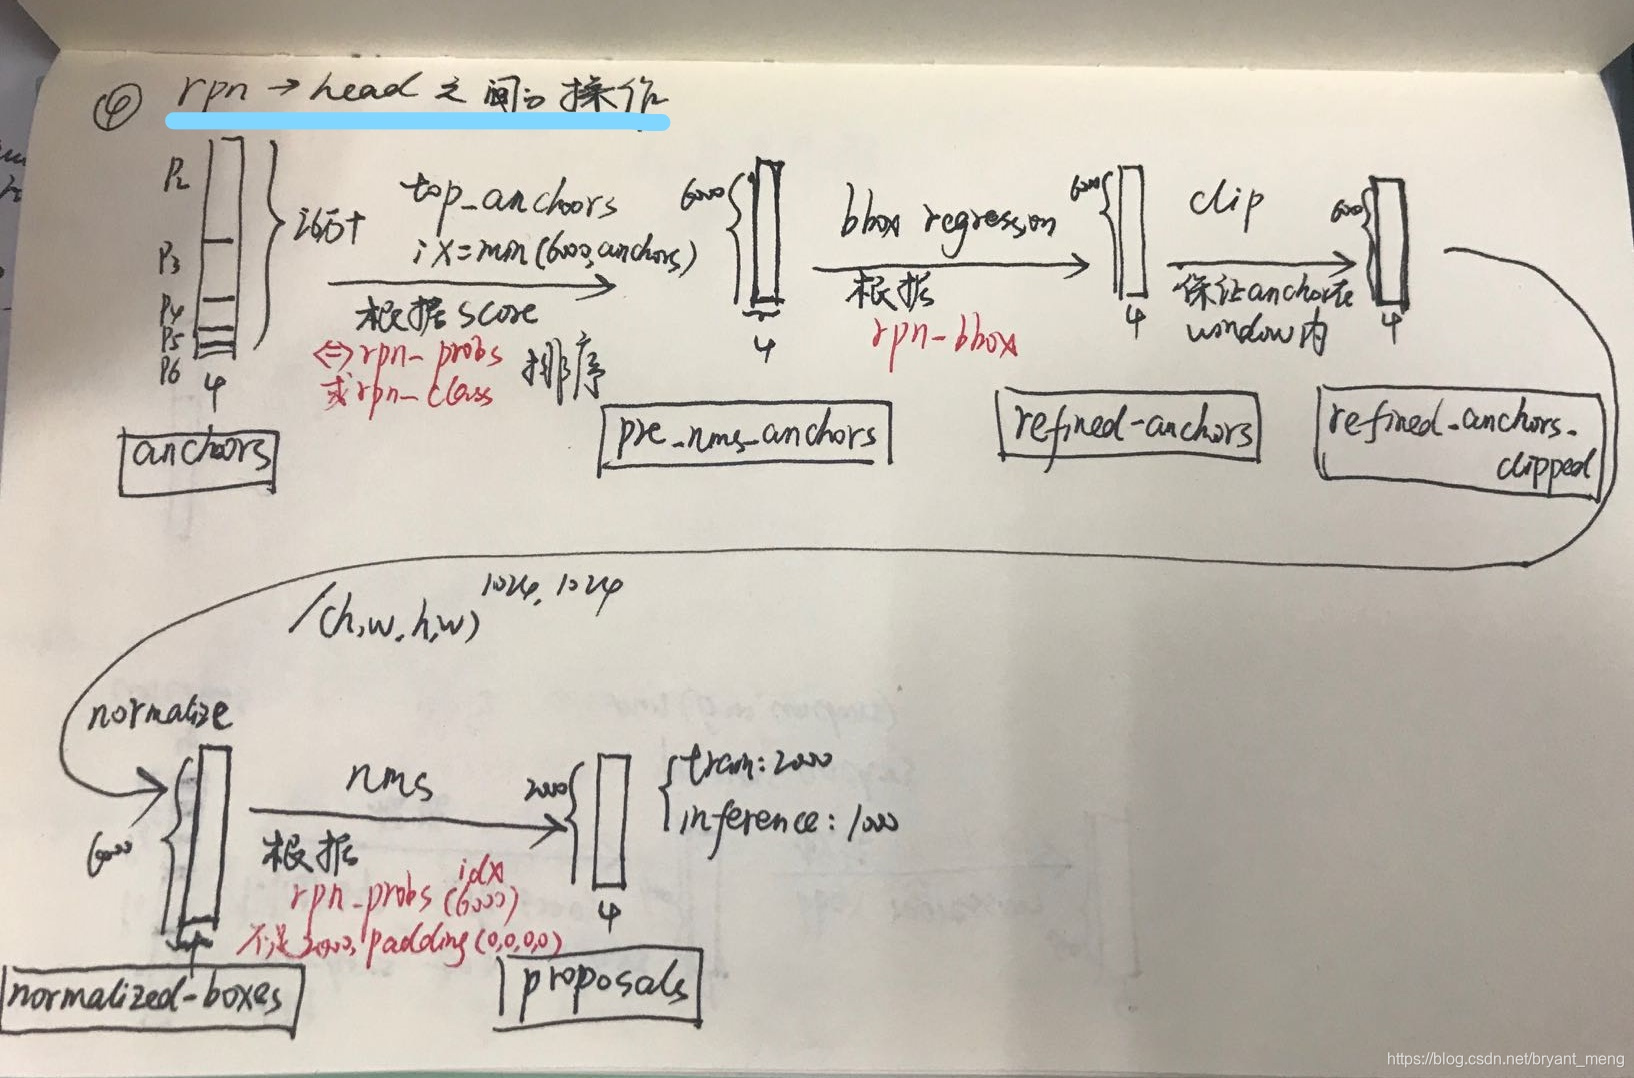 ④ rpn → head 之间の操作
P2
P3
P4
P5
P6
4
26万+
top_anchors
ix=min(6000,anchors)
根据score
⇔rpn_probs
或rpn_class
排序
anchors
6000
4
pre_nms_anchors
bbox regression
根据
rpn-bbox
6000
4
refined-anchors
clip
保证anchor在
window内
6000
4
refined_anchors_
clipped
/(h,w,h,w) 1024,1024
normalize
6000
4
normalized-boxes
nms
根据
idx
rpn_probs (6000)
不足2000,padding(0,0,0,0)
2000
4
proposals
train:2000
inference:1000
https://blog.csdn.net/bryant_meng